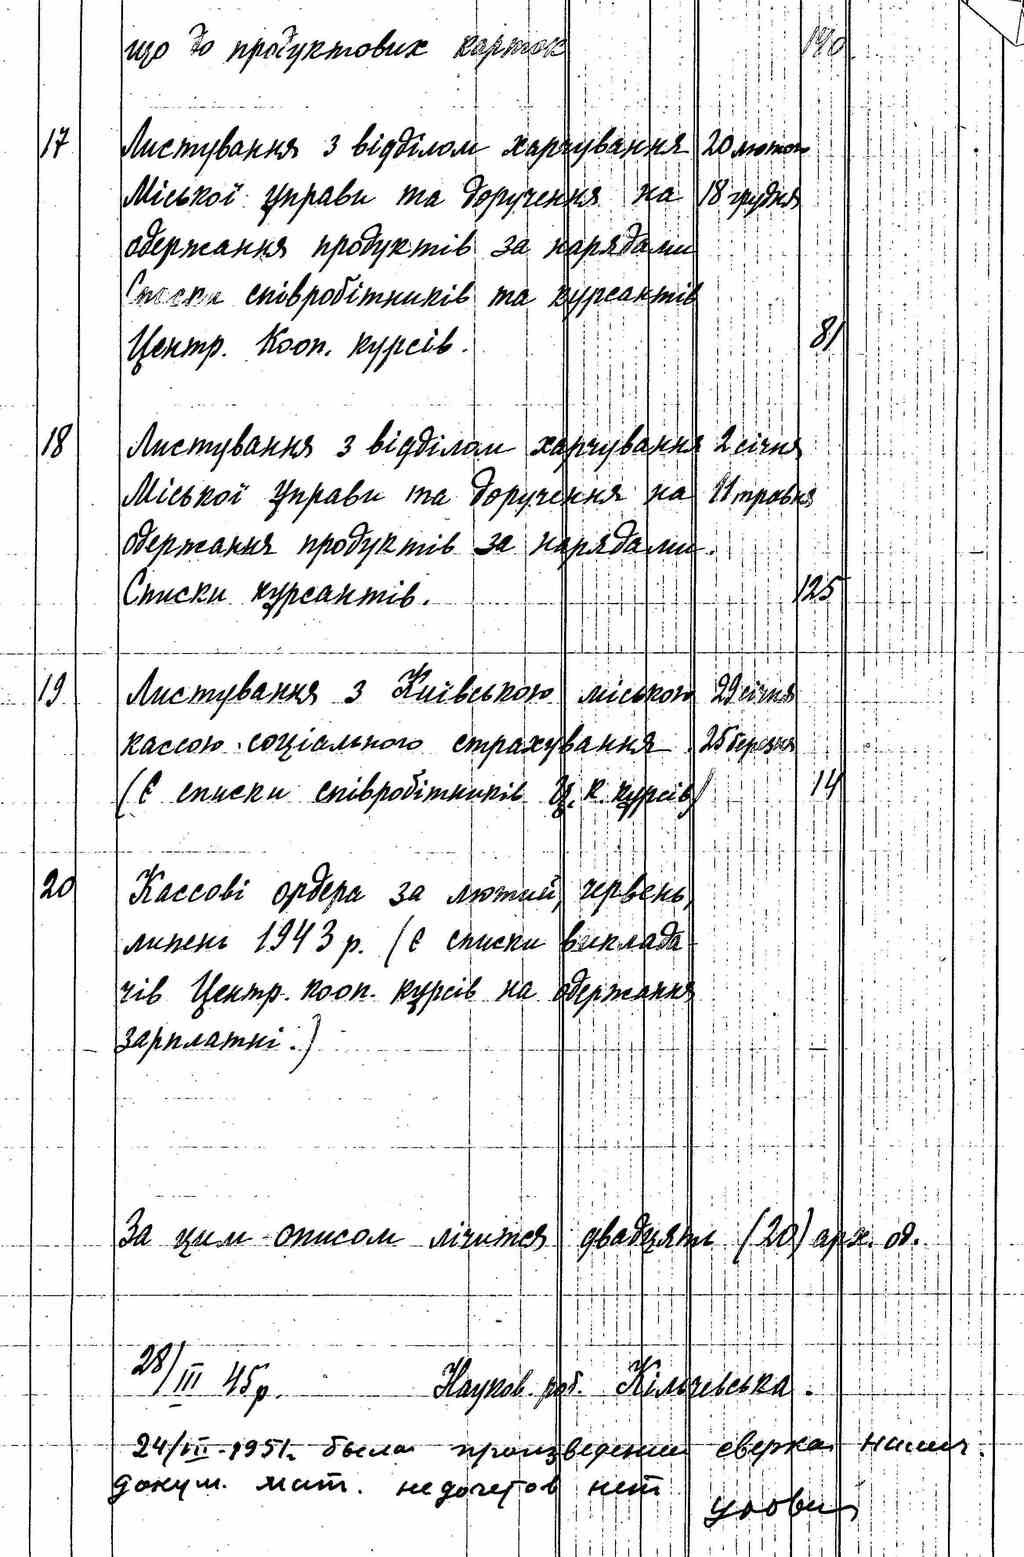 що до продуктових карток 140
17 Листування з відділом харчування 20 лютого
Міської Управи та доручення на 18 грудня
одержання продуктів за нарядами
Списки співробітників та курсантів
Центр. Кооп. курсів. 81
18 Листування з відділом харчування 2 січня
Міської Управи та доручення на 11 травня
одержання продуктів за нарядами.
Списки курсантів. 125
19 Листування з Київською міською 29 січня
кассою соціального страхування 25 березня
(Є списки співробітників Ц. К. курсів) 14
20 Кассові ордера за лютий, червень,
липень 1943 р. (Є списки виклада
чів Центр. кооп. курсів на одержання
зарплатні.)
За цим описом лічится двадцять (20) арх. од.
28/III 45 р. Науков. роб. Кільчевська.
1951. была произведена сверка налич.
докум. мат. недочетов нет